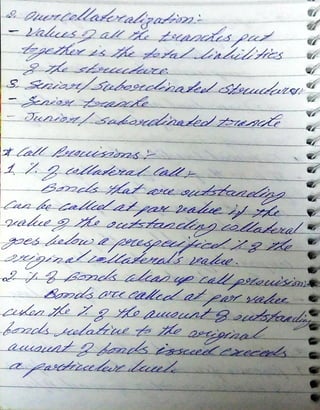 2. Overcollateralization:-
- Values of all the tranches put
together is the total liabilities
of the structure.
3. Senior/Subordinated Structures:-
- Senior tranche
- Junior/subordinated tranche
* Call Provisions:-
1. % of collateral Call:-
Bonds that are outstanding
can be called at par value if the
value of the outstanding collateral
goes below a prespecified % of the
original collateral's value.
2. % of Bonds clean up call provision:
Bonds are called at par value
when the % of the amount of outstanding
bonds relative to the original
amount of bonds issued exceeds
a particular level.